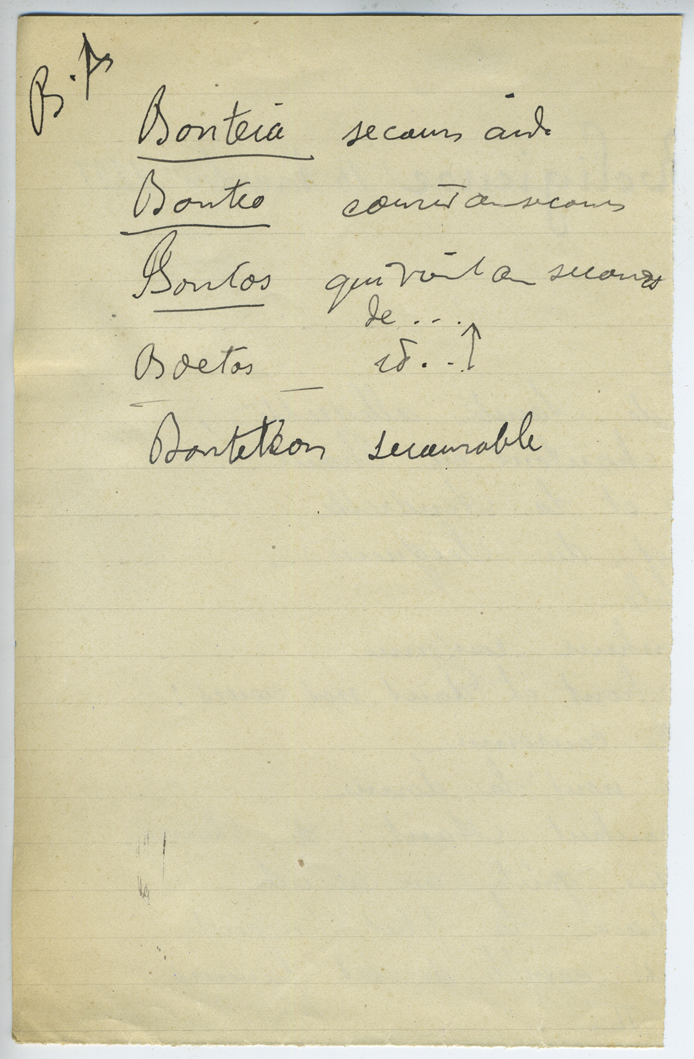 Bonteia secours aide
Bonteo courir au secours
Bontos qui vient au secours
de ...
Boetos id...
Bonteteon secourable